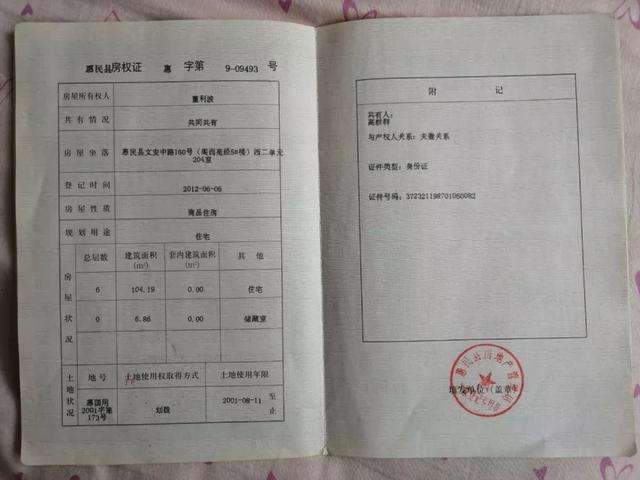 惠民县房权证 惠 字第 9-09493 号
房屋所有权人 董利波
共有情况 共同共有
房屋坐落 惠民县文安中路160号(阁西苑经5#楼)西二单元204室
登记时间 2012-06-06
房屋性质 商品住房
规划用途 住宅
房屋状况
总层数 建筑面积(m²) 套内建筑面积(m²) 其他
6 104.19 0.00 住宅
0 6.86 0.00 储藏室
土地状况
地号 土地使用权取得方式 土地使用年限
惠国用2001字第173号 划拨 2001-08-11 至 止
附 记
共有人:
高群群
与产权人关系:夫妻关系
证件类型:身份证
证件号码:372321198701060082
填发单位:(盖章)